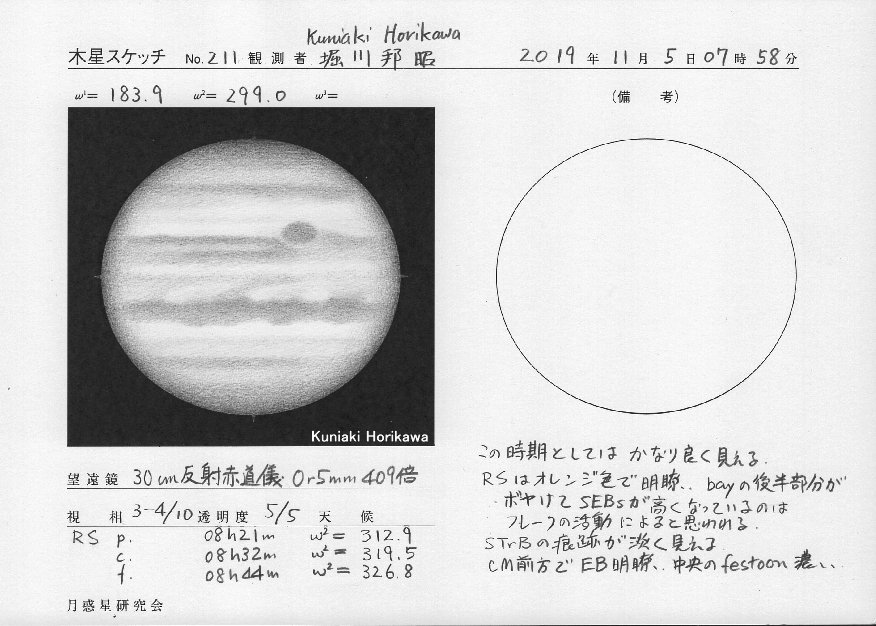 Kuniaki Horikawa
木星スケッチ No.211 観測者 堀川邦昭 2019年11月5日07時58分
ω¹= 183.9 ω²= 299.0 ω³=
(備 考)
Kuniaki Horikawa
望遠鏡 30cm反射赤道儀 Or5mm 409倍
視 相 3-4/10 透明度 5/5 天 候
RS p. 08h21m ω²= 312.9
c. 08h32m ω²= 319.5
f. 08h44m ω²= 326.8
月惑星研究会
この時期としては かなり良く見える.
RSはオレンジ色で明瞭.. bayの後半部分が
ボヤけて SEBsが高くなっているのは
フレークの活動によると思われる.
STrBの痕跡が淡く見える
CM前方で EB明瞭.. 中央のfestoon 濃い..